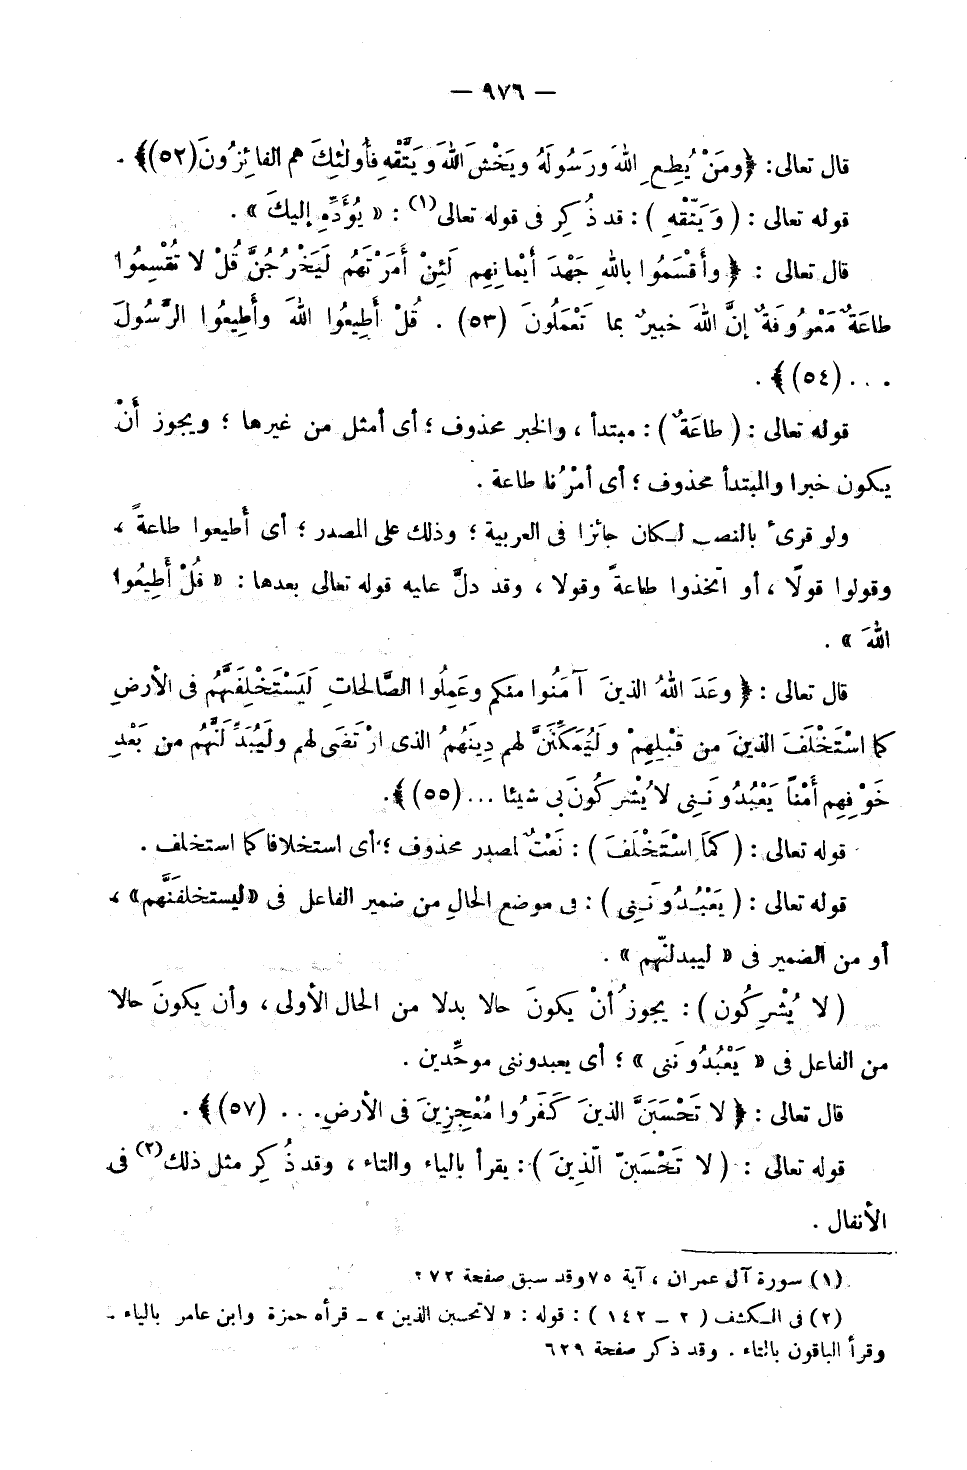 — ٩٧٦ —
قال تعالى: ﴿ومَنْ يُطِعِ اللهَ ورَسُولَهُ ويَخْشَ اللهَ ويَتَّقْهِ فأُولٰئِكَ هم الفائِزُونَ(٥٢)﴾ .
قوله تعالى : ( وَيَتّقْهِ ) : قد ذُكِر فى قوله تعالى(١) : « يُؤَدِّهِ إليكَ » .
قال تعالى : ﴿ وأَقْسَمُوا باللهِ جَهْدَ أَيْمانِهِم لَئِنْ أَمَرْتَهُم لَيَخْرُجُنَّ قُلْ لا تُقْسِمُوا
طاعَةٌ مَعْرُوفَةٌ إنَّ اللهَ خبيرٌ بما تَعْمَلُونَ (٥٣) . قُلْ أَطِيعُوا اللهَ وأَطِيعُوا الرَّسُولَ
... (٥٤)﴾ .
قوله تعالى : ( طاعَةٌ ) : مبتدأ ، والخبر محذوف ؛ أى أمثل من غيرها ؛ ويجوز أَنْ
يكون خبرا والمبتدأ محذوف ؛ أى أمْرُنا طاعة .
ولو قرىء بالنصب لكان جائزا فى العربية ؛ وذلك على المصدر ؛ أى أَطيعوا طاعةً ،
وقولوا قولًا ، أو اتخذوا طاعةً وقولا ، وقد دلَّ عليه قوله تعالى بعدها : « قُلْ أَطِيعُوا
اللهَ » .
قال تعالى : ﴿ وعَدَ اللهُ الذينَ آمَنُوا منكم وعَمِلُوا الصَّالحاتِ لَيَسْتَخْلِفَنَّهُم فى الأرضِ
كما اسْتَخْلَفَ الذينَ من قَبْلِهِمْ ولَيُمَكِّنَنَّ لهم دِينَهُمُ الذى ارْتَضَى لهم ولَيُبَدِّلَنَّهُم من بَعْدِ
خَوْفِهِم أَمْناً يَعْبُدُونَنِى لا يُشْرِكُونَ بى شيئا ... (٥٥)﴾ .
قوله تعالى : ( كَمَا اسْتَخْلَفَ ) : نَعْتٌ لمصدر محذوف ؛ أى استخلافا كما استخلف .
قوله تعالى : ( يَعْبُدُونَنِى ) : فى موضع الحالِ من ضمير الفاعل فى «ليستخلفَنَّهم» ،
أو من الضمير فى « ليبدلنّهم » .
( لا يُشْرِكُون ) : يجوز أنْ يكونَ حالا بدلا من الحال الأولى ، وأن يكونَ حالا
من الفاعل فى « يَعْبُدُونَنى » ؛ أى يعبدوننى موحِّدين .
قال تعالى : ﴿ لا تَحْسَبَنَّ الذينَ كَفَرُوا مُعْجِزِينَ فى الأرضِ... (٥٧)﴾ .
قوله تعالى : ( لا تَحْسَبَنّ الّذِينَ ) : يقرأ بالياء والتاء ، وقد ذُكِر مثل ذلك(٢) فى
الأنفال .
(١) سورة آل عمران ، آية ٧٥ وقد سبق صفحة ٢٧٢
(٢) فى الكشف ( ٢ – ١٤٢ ) : قوله : « لا تحسبن الذين » – قرأه حمزة وابن عامر بالياء .
وقرأ الباقون بالتاء . وقد ذكر صفحة ٦٢٩